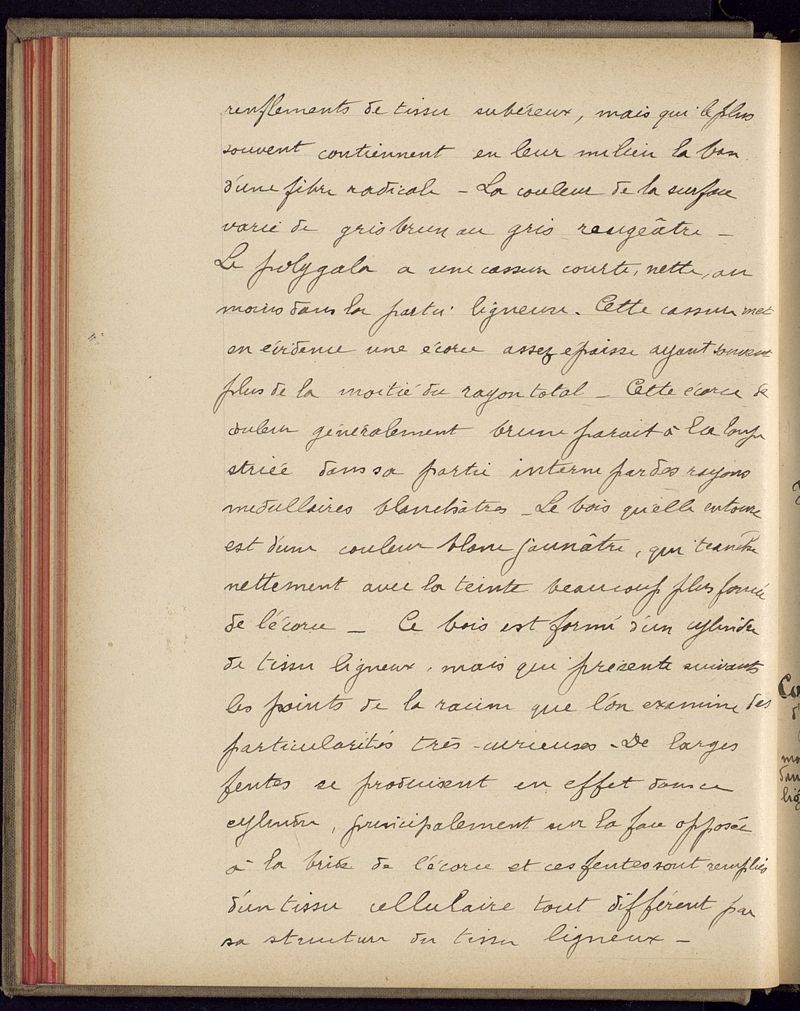 renflements de tissu subéreux, mais qui le plus
souvent contiennent en leur milieu la base
d'une fibre radicale - La couleur de la surface
varie de gris brun au gris rougeâtre -
Le polygala a une cassure courte, nette, au
moins dans la partie ligneuse. Cette cassure met
en évidence une écorce assez epaisse ayant souvent
plus de la moitié du rayon total - Cette écorce de
couleur généralement brune parait à la loupe
striée dans sa partie interne par des rayons
medullaires blanchâtres - Le bois qu'elle entoure
est d'une couleur blanc jaunâtre, qui tranche
nettement avec la teinte beaucoup plus foncée
de l'écorce - Ce bois est formé d'un cylindre
de tissu ligneux, mais qui présente suivants
les points de la racine que l'on examine des
particularités très curieuses - De larges
fentes se produisent en effet dans ce
cylindre, principalement sur la face opposée
à la de l'écorce et ces fentes sont remplies
d'un tissu cellulaire tout différent par
sa structure du tissu ligneux -
Co
mo
dan
lig